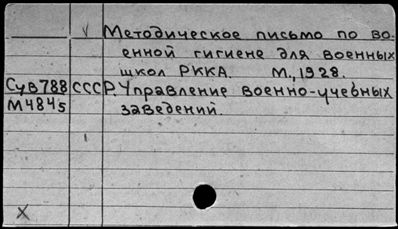 Методическое письмо по во-
енной гигиене для военных
школ РККА. М., 1928.
Сув788 СССР. Управление военно-учебных
М4845 заведений.
X